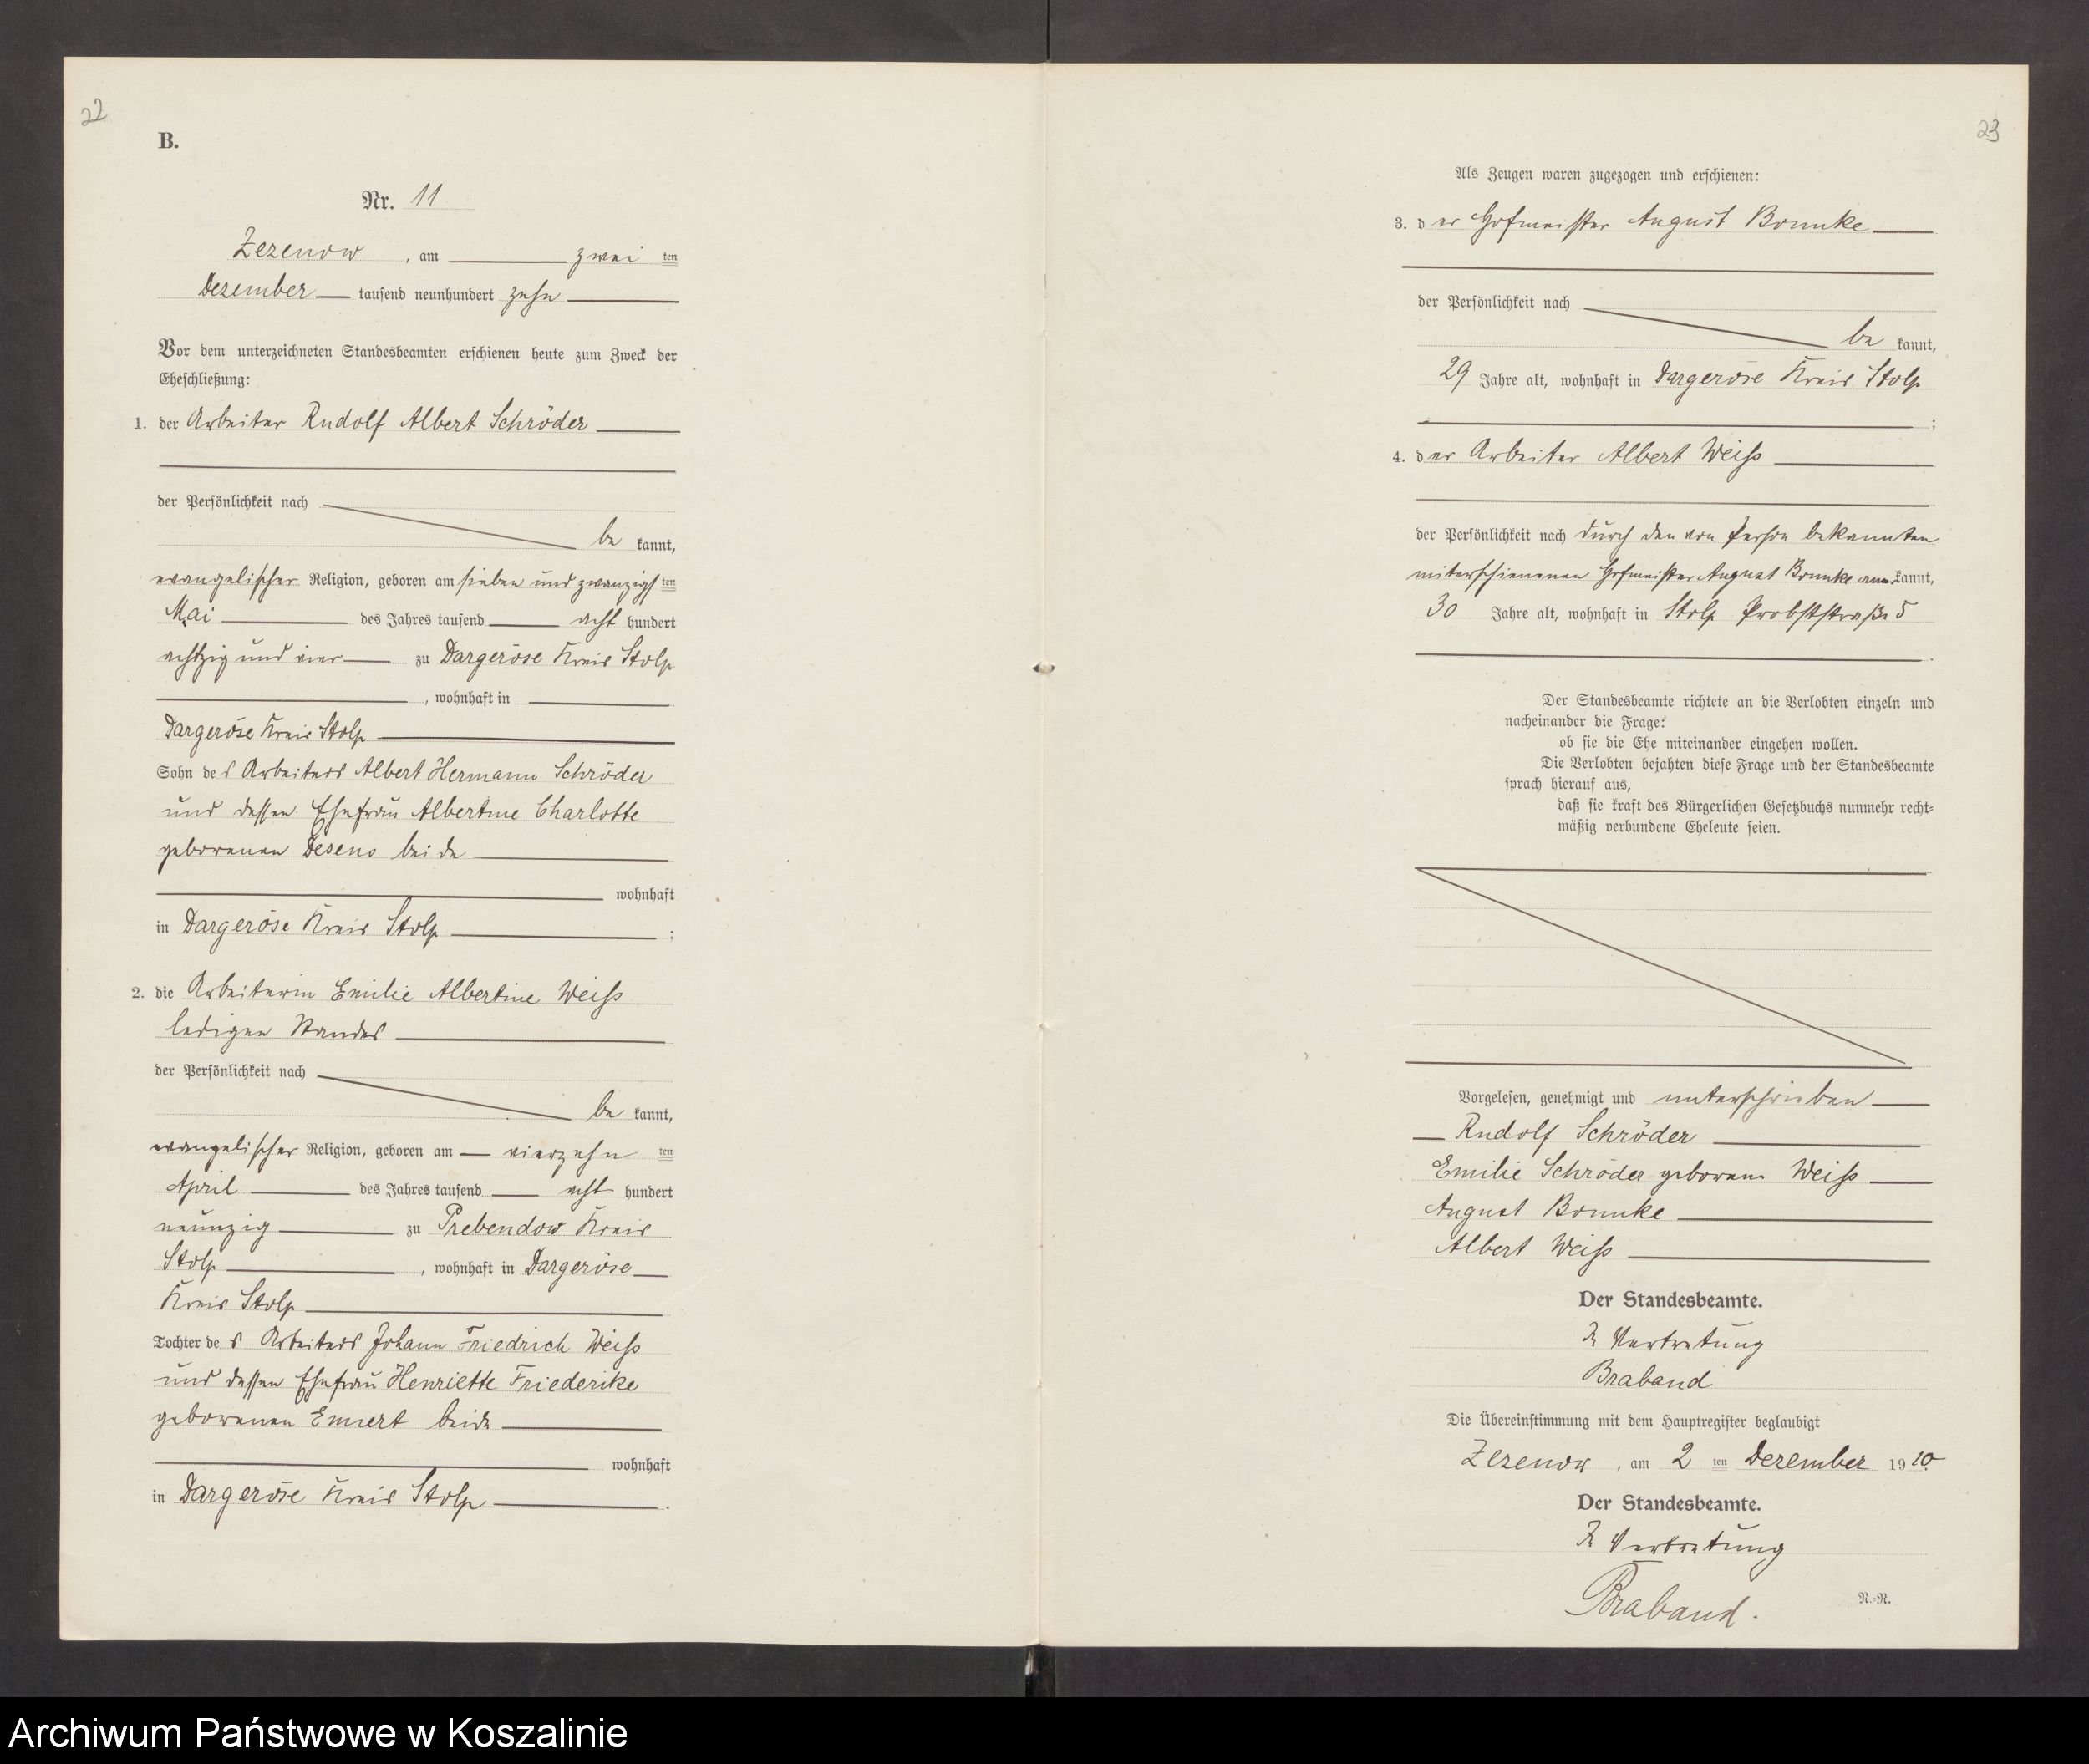 22
B.
Nr. 11
Zezenow, am zwei ten
Dezember tausend neunhundert zehn
Vor dem unterzeichneten Standesbeamten erschienen heute zum Zweck der
Eheschließung:
1. der Arbeiter Rudolf Albert Schröder
der Persönlichkeit nach
be kannt,
evangelischer Religion, geboren am sieben und zwanzigsten
Mai des Jahres tausend acht hundert
achtzig und vier zu Dargeröse Kreis Stolp
, wohnhaft in
Dargeröse Kreis Stolp
Sohn des Arbeiters Albert Hermann Schröder
und dessen Ehefrau Albertine Charlotte
geborenen Desens beide
wohnhaft
in Dargeröse Kreis Stolp ;
2. die Arbeiterin Emilie Albertine Weiß
ledigen Standes
der Persönlichkeit nach
be kannt,
evangelischer Religion, geboren am vierzehn ten
April des Jahres tausend acht hundert
neunzig zu Prebendow Kreis
Stolp, wohnhaft in Dargeröse
Kreis Stolp
Tochter des Arbeiters Johann Friedrich Weiß
und dessen Ehefrau Henriette Friederike
geborenen beide
wohnhaft
in Dargeröse Kreis Stolp .
23
Als Zeugen waren zugezogen und erschienen:
3. der Hofmeister August
der Persönlichkeit nach
be kannt,
29 Jahre alt, wohnhaft in Dargeröse Kreis Stolp
;
4. der Arbeiter Albert Weiß
der Persönlichkeit nach durch den von Person bekannten
miterschienenen Hofmeister August anerkannt,
30 Jahre alt, wohnhaft in Stolp Probststraße 5
.
Der Standesbeamte richtete an die Verlobten einzeln und
nacheinander die Frage:
ob sie die Ehe miteinander eingehen wollen.
Die Verlobten bejahten diese Frage und der Standesbeamte
sprach hierauf aus,
daß sie kraft des Bürgerlichen Gesetzbuchs nunmehr recht-
mäßig verbundene Eheleute seien.
Vorgelesen, genehmigt und unterschrieben
Rudolf Schröder
Emilie Schröder geborene Weiß
August
Albert Weiß
Der Standesbeamte.
In Vertretung
Braband
Die Übereinstimmung mit dem Hauptregister beglaubigt
Zezenow, am 2 ten Dezember 1910
Der Standesbeamte.
In Vertretung
Braband.
N.-N.
Archiwum Państwowe w Koszalinie